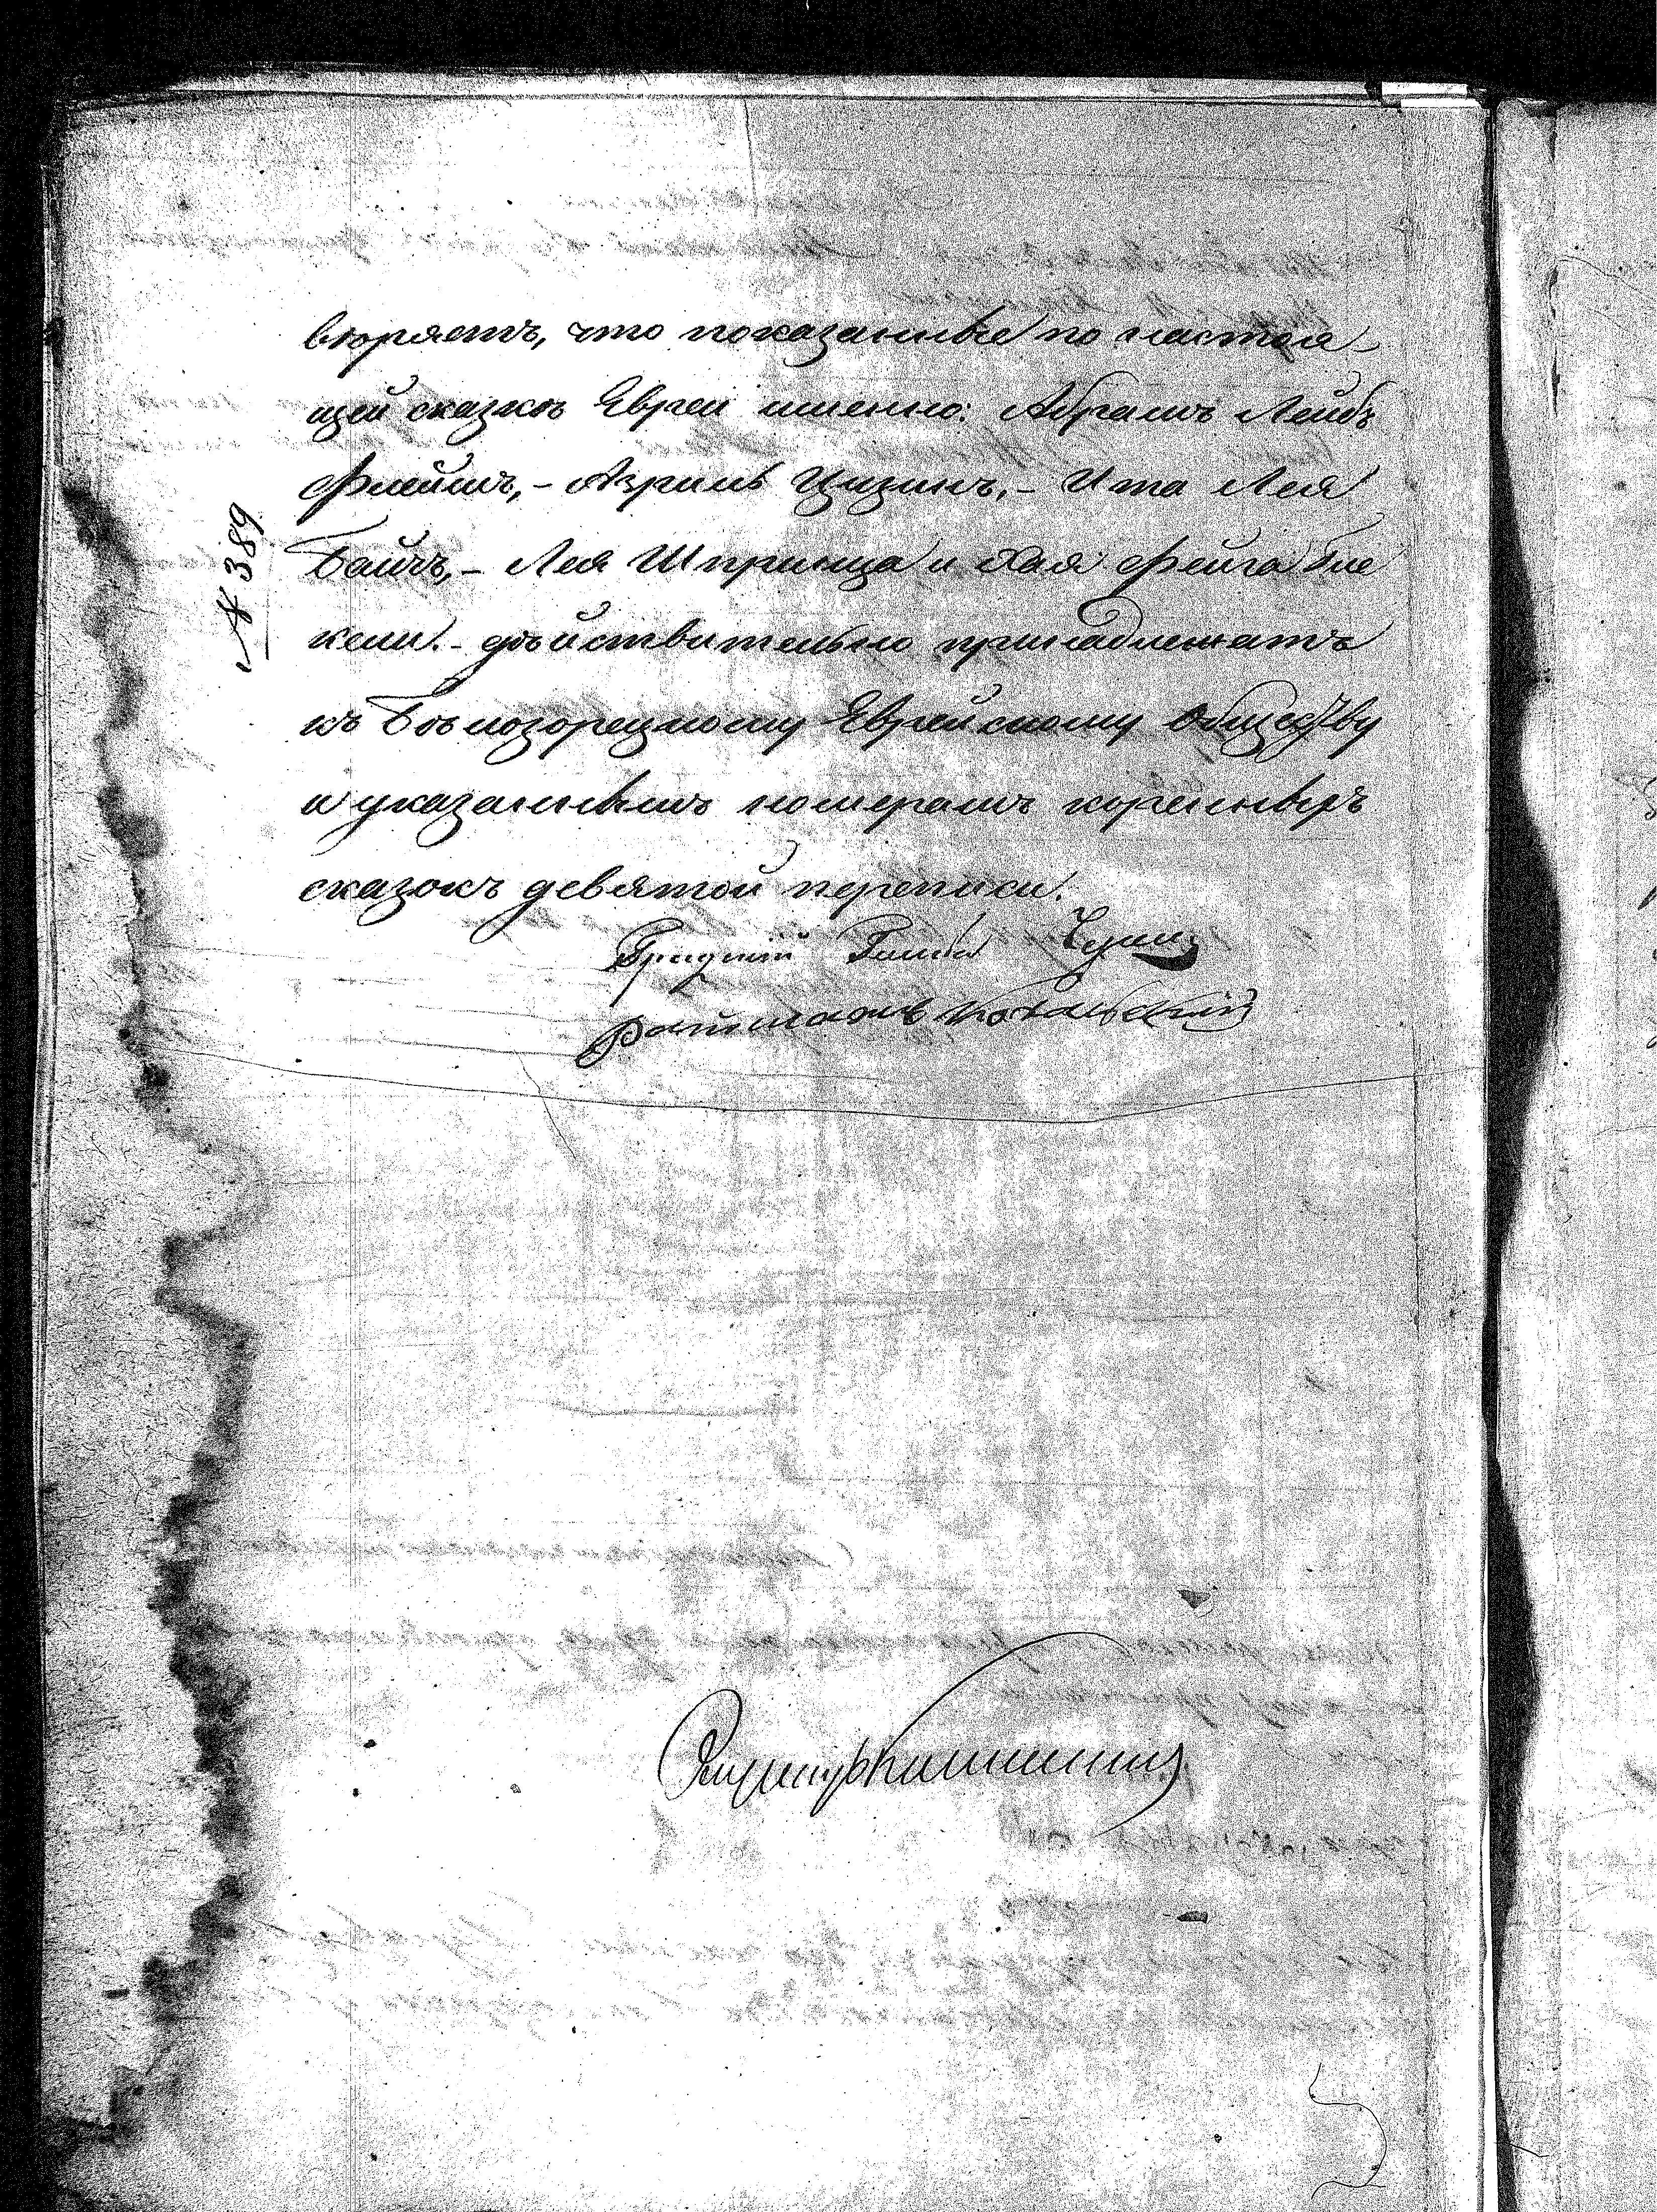 вѣряетъ, что показанные по настоя-
щей сказкѣ Евреи именно: Абрамъ Лейбъ
Флеймъ,- Азриль Цизинъ,- Ита Лея
Байчъ,- Лея Шпринца и Хая Фейга Бле
кели.- дѣйствительно принадлежатъ
№ 389
къ Бѣлозорецкому Еврейскому Обществу
и указаннымъ номерамъ коренныхъ
сказокъ девятой переписи.
Ратманъ